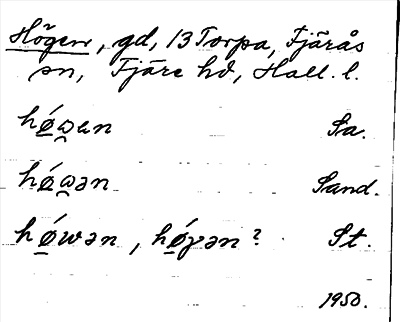 Högen, gd, 13 Torpa, Fjärås
sn, Fjäre hd, Hall. l.
hǿ̲ω̯en Sa.
hǿ̲ω̯ən Sand.
hǿ̲wən, hǿ̲γən? St.
1950.